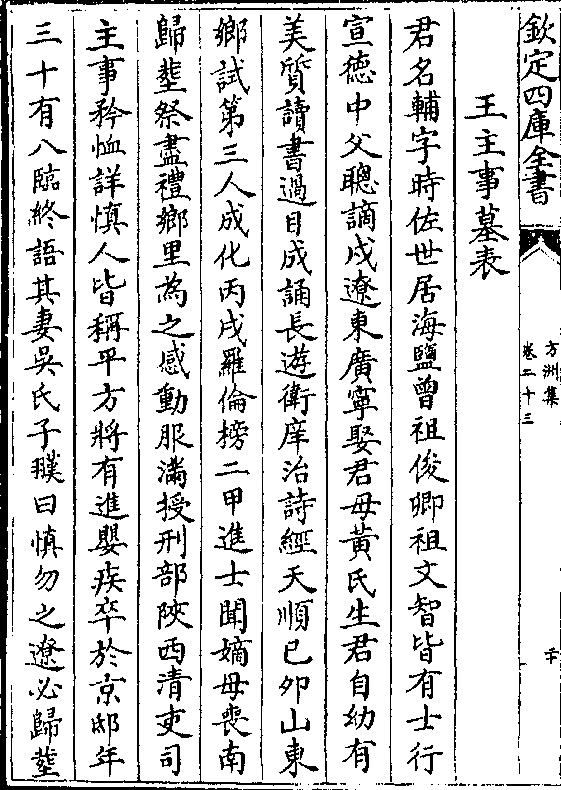 欽定四庫全書
方洲集
卷二十三
王主事墓表
君名輔字時佐世居海鹽曾祖俊卿祖文智皆有士行
宣德中父聰謫戍遼東廣寧娶君母黃氏生君自幼有
美質讀書過目成誦長遊衛庠治詩經天順已夘山東
鄉試第三人成化丙戌羅倫榜二甲進士聞嫡母喪南
歸塟祭盡禮鄉里為之感動服滿授刑部陜西清吏司
主事矜恤詳慎人皆稱平方將有進嬰疾卒於京邸年
三十有八臨終語其妻吳氏子璞曰慎勿之遼必歸塟